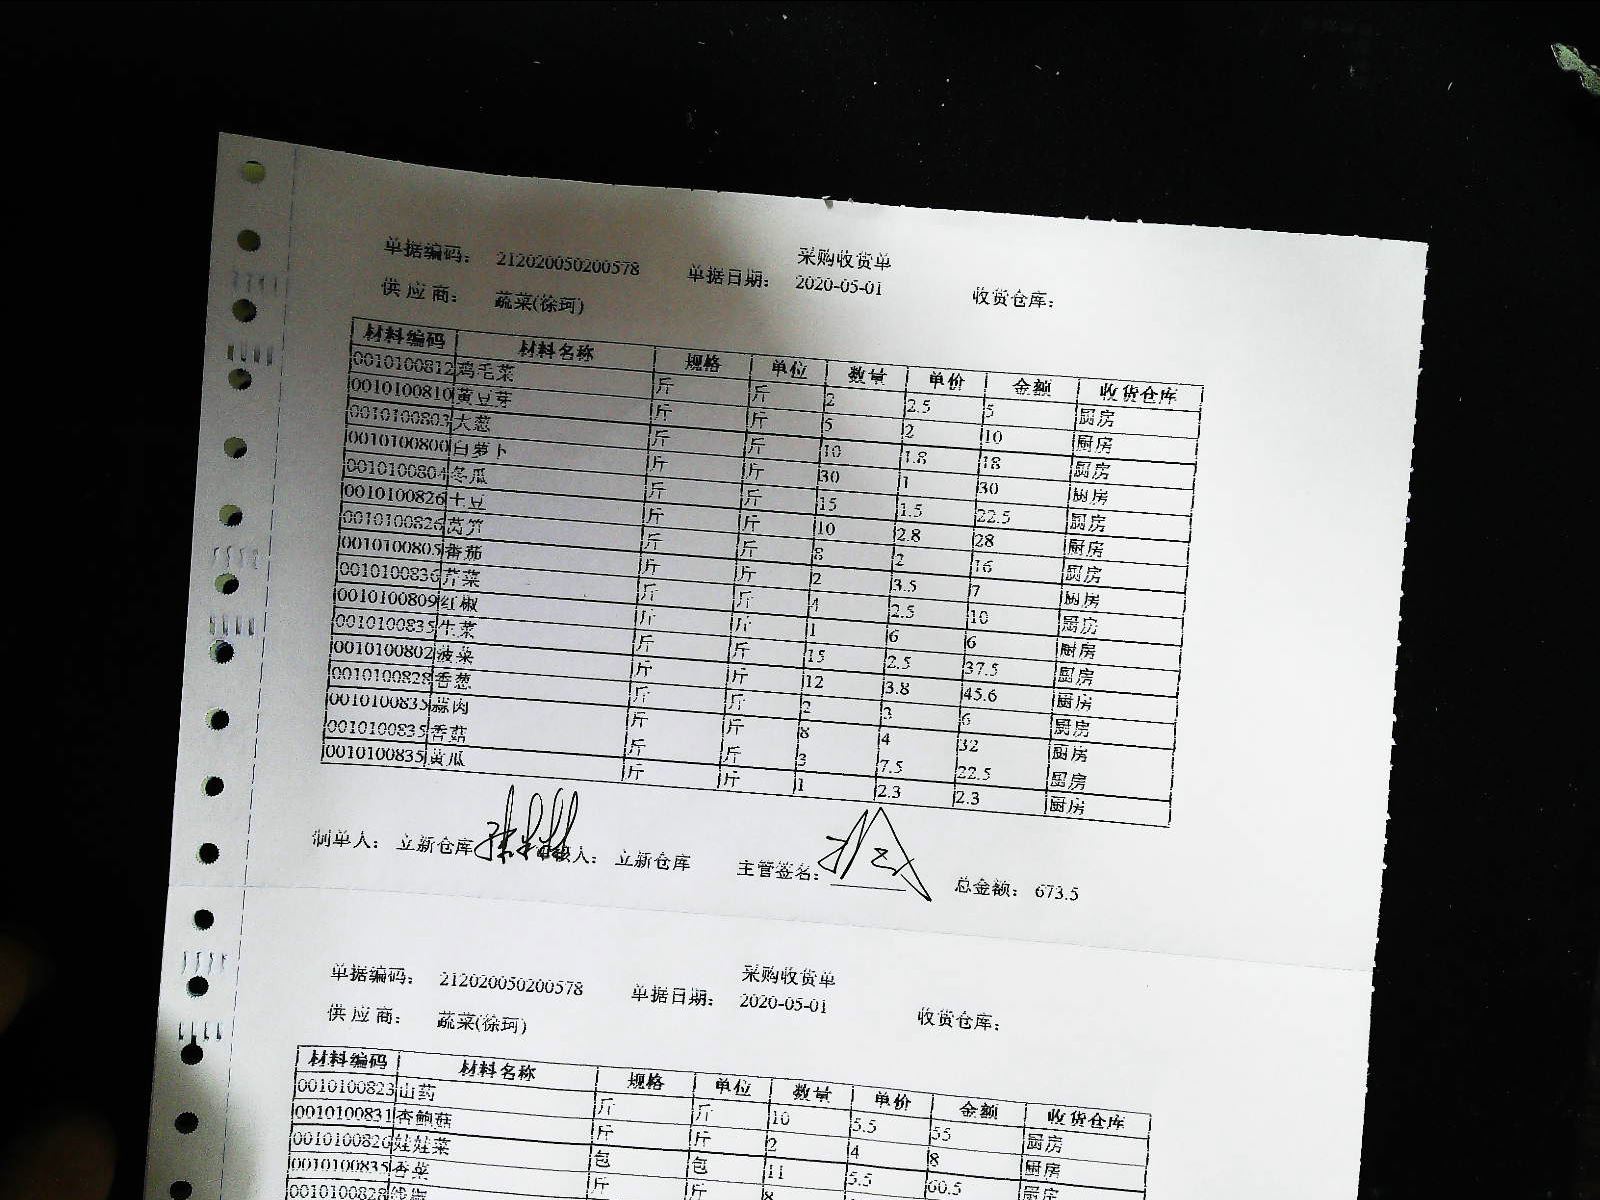 采购收货单
单据编码： 212020050200578 单据日期： 2020-05-01 收货仓库：
供 应 商： 蔬菜(徐珂)
材料编码 材料名称 规格 单位 数量 单价 金额 收货仓库
0010100812 鸡毛菜 斤 斤 2 2.5 5 厨房
0010100810 黄豆芽 斤 斤 5 2 10 厨房
0010100803 大葱 斤 斤 10 1.8 18 厨房
0010100800 白萝卜 斤 斤 30 1 30 厨房
0010100804 冬瓜 斤 斤 15 1.5 22.5 厨房
0010100826 土豆 斤 斤 10 2.8 28 厨房
0010100826 莴笋 斤 斤 8 2 16 厨房
0010100805 番茄 斤 斤 2 3.5 7 厨房
0010100836 芹菜 斤 斤 4 2.5 10 厨房
0010100809 红椒 斤 斤 1 6 6 厨房
0010100835 生菜 斤 斤 15 2.5 37.5 厨房
0010100802 菠菜 斤 斤 12 3.8 45.6 厨房
0010100828 香葱 斤 斤 2 3 6 厨房
0010100835 蒜肉 斤 斤 8 4 32 厨房
0010100835 香菇 斤 斤 3 7.5 22.5 厨房
0010100835 黄瓜 斤 斤 1 2.3 2.3 厨房
制单人： 立新仓库 人： 立新仓库 主管签名： 总金额： 673.5
采购收货单
单据编码： 212020050200578 单据日期： 2020-05-01 收货仓库：
供 应 商： 蔬菜(徐珂)
材料编码 材料名称 规格 单位 数量 单价 金额 收货仓库
0010100823 山药 斤 斤 10 5.5 55 厨房
0010100831 杏鲍菇 斤 斤 2 4 8 厨房
0010100826 娃娃菜 包 包 11 5.5 60.5 厨房
0010100835 香菜 斤 斤 8 厨房
0010100828